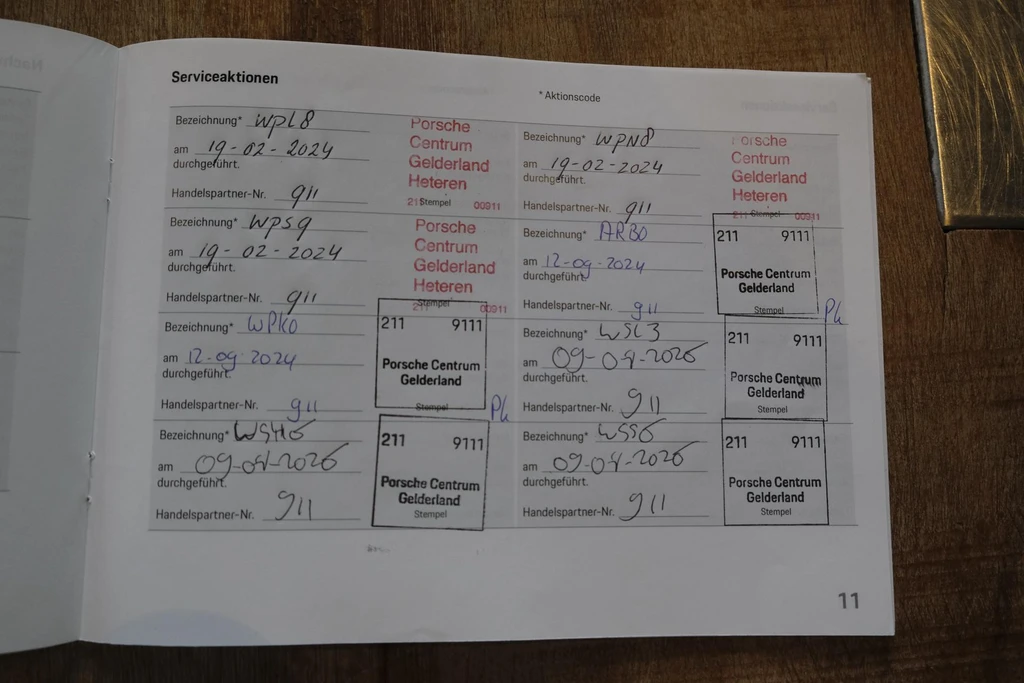 Serviceaktionen
* Aktionscode
Bezeichnung* WPL8
am 19-02-2024
durchgeführt.
Handelspartner-Nr. 911
Porsche
Centrum
Gelderland
Heteren
Stempel 00911
Bezeichnung* WPN8
am 19-02-2024
durchgeführt.
Handelspartner-Nr. 911
Porsche
Centrum
Gelderland
Heteren
211 Stempel 00911
Bezeichnung* WPS9
am 19-02-2024
durchgeführt.
Handelspartner-Nr. 911
Porsche
Centrum
Gelderland
Heteren
211 Stempel 00911
Bezeichnung* ARB0
am 12-09-2024
durchgeführt.
Handelspartner-Nr. 911
211 9111
Porsche Centrum
Gelderland
Stempel
Bezeichnung* WPK0
am 12-09-2024
durchgeführt.
Handelspartner-Nr. 911
211 9111
Porsche Centrum
Gelderland
Stempel
Bezeichnung* WSL3
am
durchgeführt.
Handelspartner-Nr. 911
211 9111
Porsche Centrum
Gelderland
Stempel
Bezeichnung*
am
durchgeführt.
Handelspartner-Nr. 911
211 9111
Porsche Centrum
Gelderland
Stempel
Bezeichnung*
am
durchgeführt.
Handelspartner-Nr. 911
211 9111
Porsche Centrum
Gelderland
Stempel
11